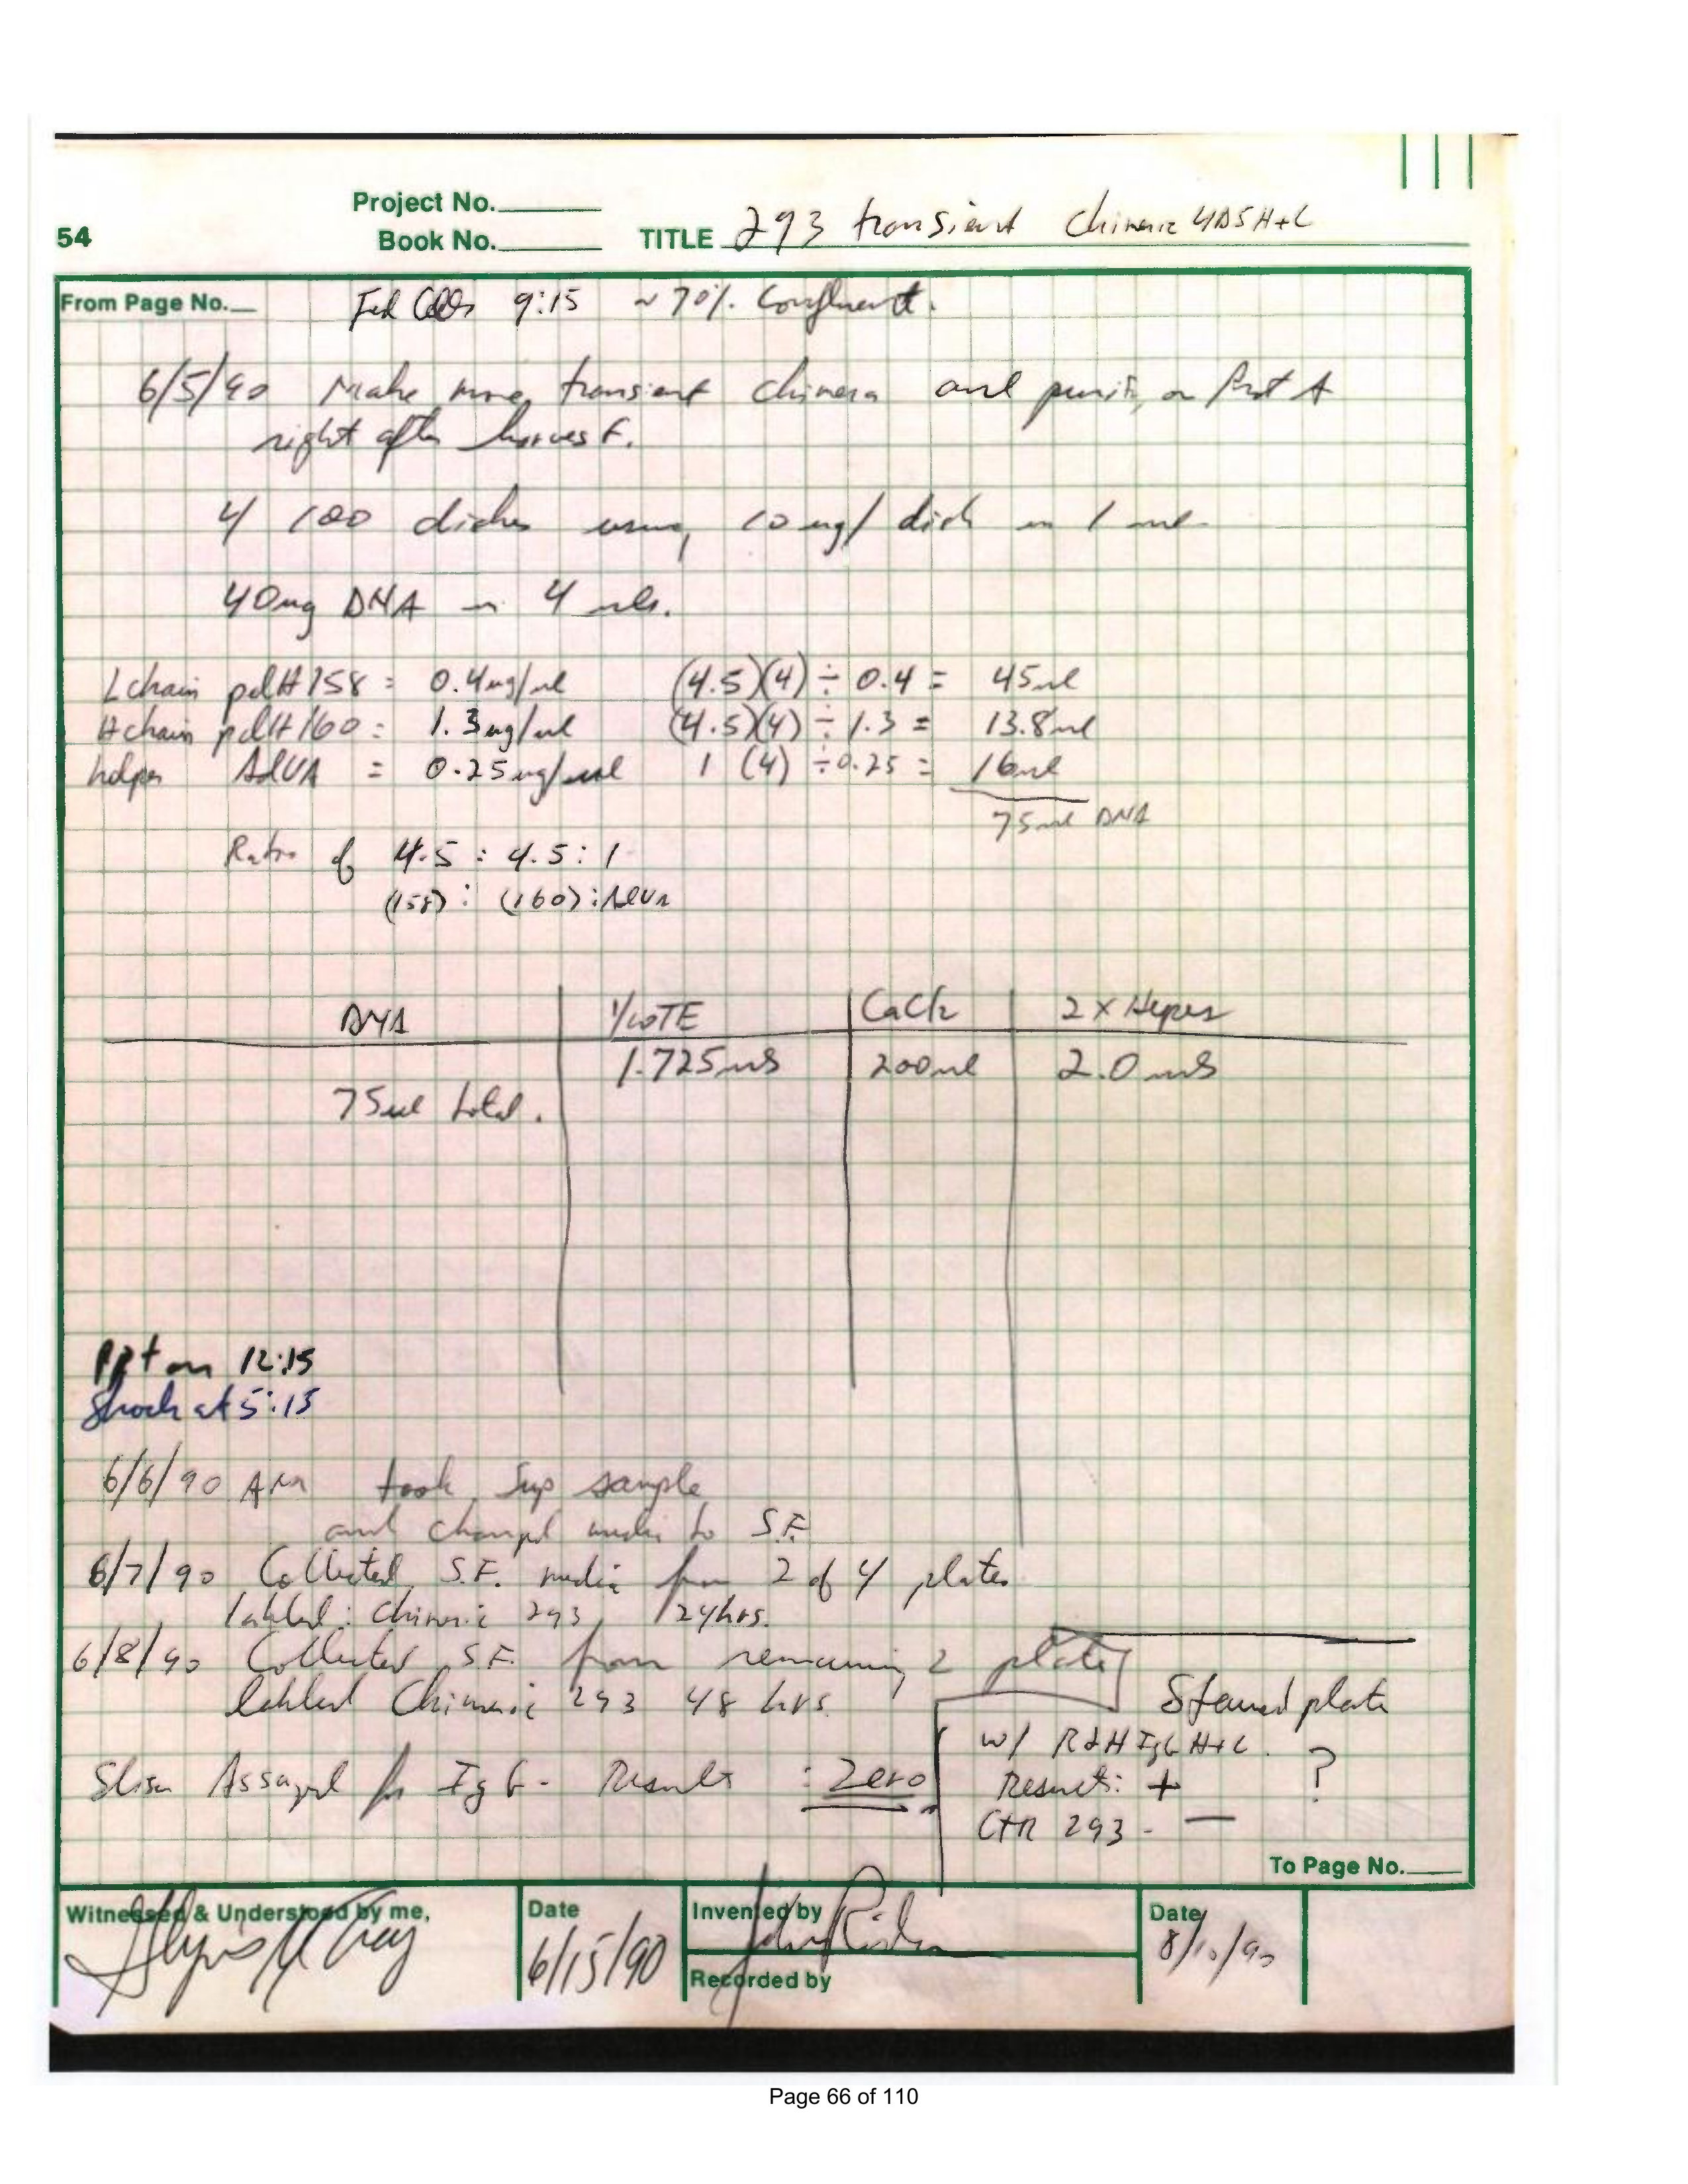 54
Project No.
Book No.
TITLE 293 transient Chimeric 4D5 H+L
From Page No.
Fed Cells 9:15 ~70% Confluent.
6/5/90 Make more transient chimera and purify on Prot A
right after harvest.
4 100 dishes using 10 ug/dish in 1 ml
40ug DNA in 4 mls.
L chain pdH158 = 0.4ug/ul (4.5)(4) ÷ 0.4 = 45ul
H chain pdH160 = 1.3ug/ul (4.5)(4) ÷ 1.3 = 13.8ul
helper AdVA = 0.25ug/ul 1 (4) ÷ 0.25 = 16ul
75ul DNA
Ratio of 4.5 : 4.5 : 1
(158) : (160) : AdVA
DNA 1/10TE CaCl2 2 x Hepes
1.725mls 200ul 2.0 mls
75ul total.
Ppt on 12:15
Shock at 5:15
6/6/90 AM took Sup sample
and changed media to S.F.
6/7/90 Collected S.F. media from 2 of 4 plates
labled: Chimeric 293 /24hrs.
6/8/90 Collected S.F. from remaining 2 plates
labled Chimeric 293 48 hrs.
Elisa Assayed for IgG - Result : Zero
Stained plate
w/ RαH IgG H+L. ?
Results: +
CTR 293 - —
To Page No.
Witnessed & Understood by me,
Date
6/15/90
Invented by
Recorded by
Date
8/10/90
Page 66 of 110